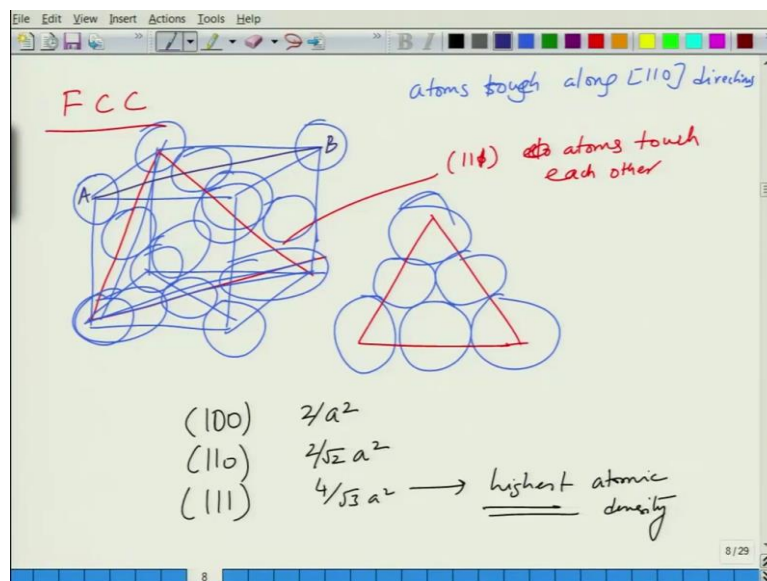 File Edit View Insert Actions Tools Help
B I
atoms tough along [110] directions
FCC
A
B
(111) atoms touch
each other
(100) 2/a²
(110) 2/√2 a²
(111) 4/√3 a² → highest atomic
density
8/29
8